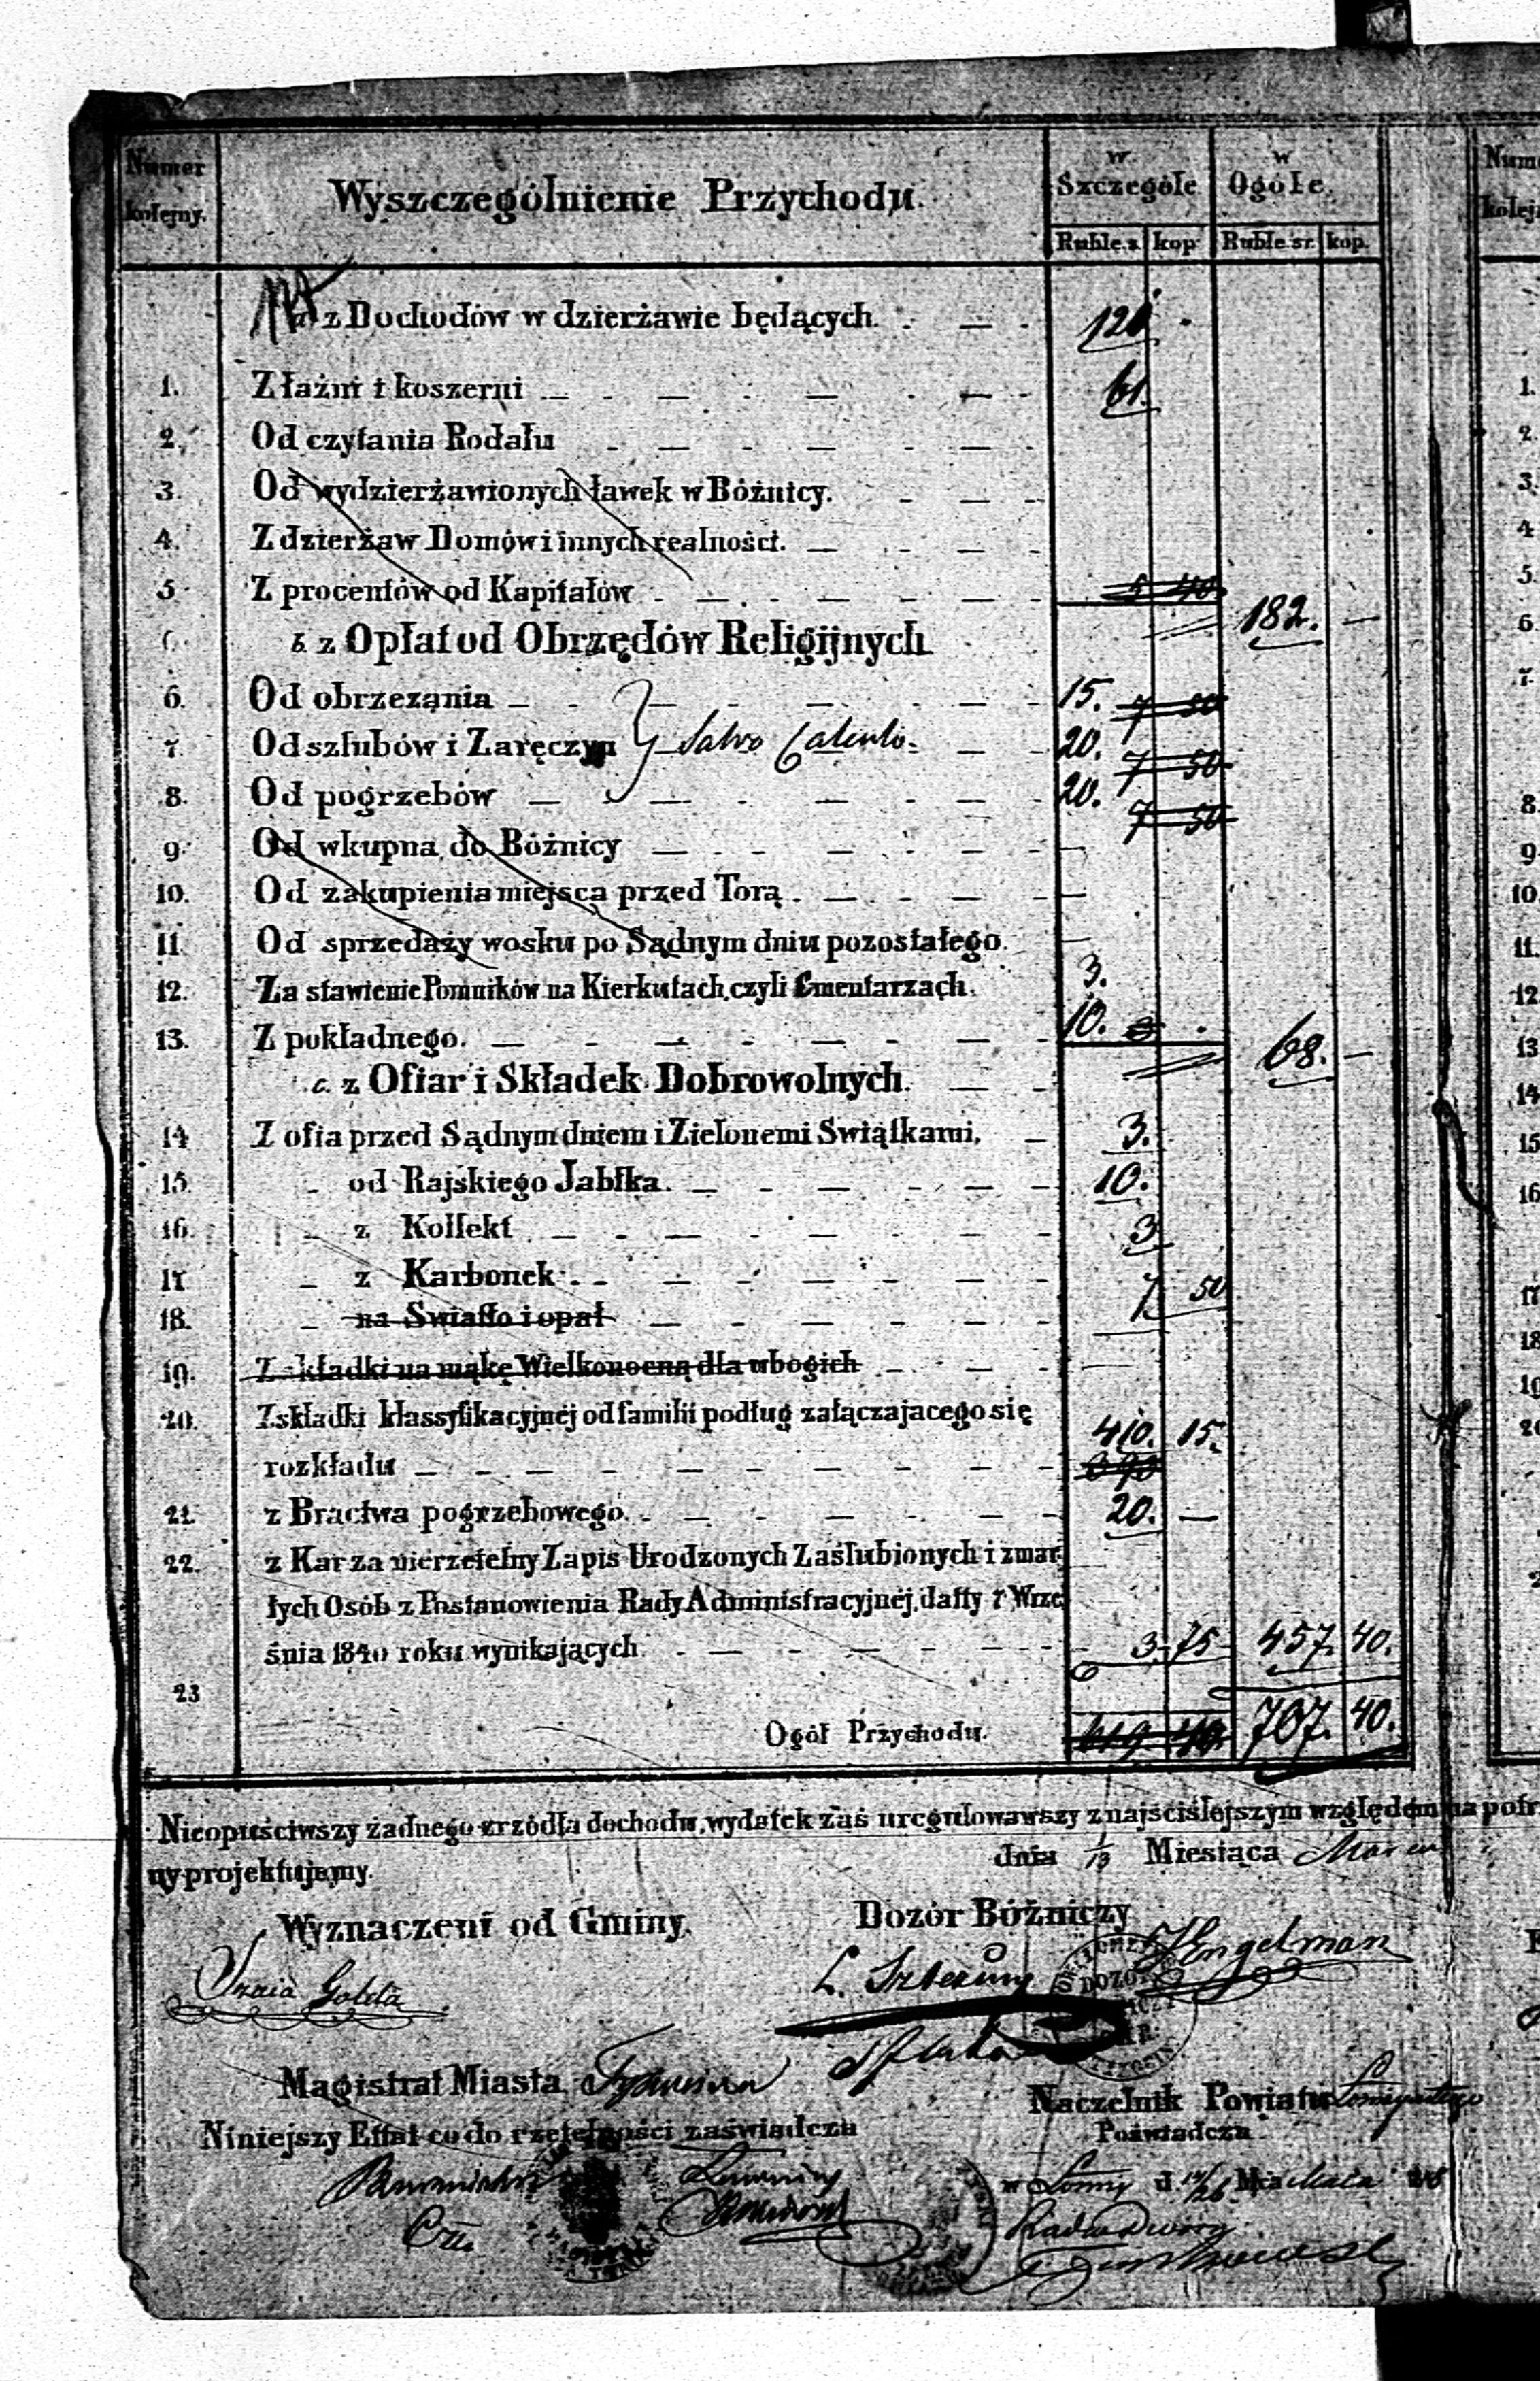 Numer kolejny. Wyszczególnienie Przychodu. w Szczególe w Ogóle
Ruble s. kop Ruble sr. kop.
a z Dochodów w dzierżawie będących. 121
1. Z łaźni i koszerni 61.
2. Od czytania Rodału
3. Od wydzierżawionych ławek w Bóżnicy.
4. Z dzierżaw Domów i innych realności.
5 Z procentów od Kapitałów 182. —
b. z Opłat od Obrzędów Religijnych
6. Od obrzezania 15. 7 50
7 Od szlubów i Zaręczyn Salvo Calculo. 20. 7 50
8. Od pogrzebów 20. 7 50
9. Od wkupna do Bóżnicy —
10. Od zakupienia miejsca przed Torą. —
11. Od sprzedaży wosku po Sądnym dniu pozostałego. —
12. Za stawienie Pomników na Kierkutach, czyli Cmentarzach. 3.
13. Z pokładnego. 10. 68. —
c. z Ofiar i Składek Dobrowolnych.
14 Z ofia przed Sądnym dniem i Zielonemi Swiątkami, 3.
15. od Rajskiego Jabłka. 10.
16. z Kollekt 3
17 z Karbonek 7 50
18. na Swiatło i opał
19. Z składki na mąkę Wielkonocną dla ubogich
20. Z składki klassyfikacyjnéj od familii podług załączajacego się
rozkładu 410. 15.
21. z Bractwa pogrzebowego. 20. —
22. z Kar za nierzetelny Zapis Urodzonych Zaślubionych i zmar
łych Osób z Postanowienia Rady Administracyjnéj, datty 7 Wrze
śnia 1840 roku wynikających 3. 75 457. 40.
23
Ogół Przychodu. 619 40 707. 40.
Nieopuściwszy żadnego zrzódła dochodu, wydatek zaś uregulowawszy z najściślejszym względem na potr
ny projektujemy.
dnia 1/13 Miesiąca Marca
Wyznaczeni od Gminy. Dozór Bóżniczy
Engelman
DOZÓR
Magistrat Miasta Tykocina
Naczelnik Powiatu Łomżyńskiego
Niniejszy Etat co do rzetelności zaświadcza
Poświadcza
w Łomży d. 14/26 Mca Maia
Radca Dworu